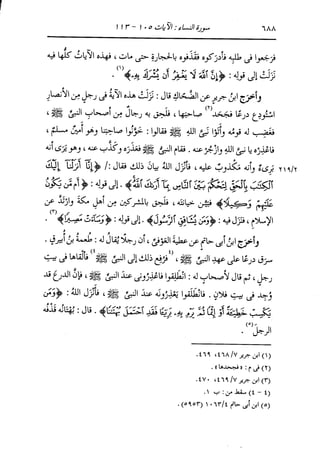 ٦٨٨ سورة النساء : الآيات ١٠٥ - ١١٣
فرجعوا فى طلبه فأدركوه فقذفوه بالحجارة حتى مات ، فهذه الآيات كلها فيه
نزلت إلى قوله : ﴿إن الله لا يغفر أن يشرك به﴾(١) .
وأخرج ابن جرير عن الضحاك قال : نزلت هذه الآية فى رجل من الأنصار
استودع درعًا فجحد(٢) صاحبها ، فلحق به رجال من أصحاب النبى ﷺ ،
فغضب له قومه وأتوا نبى الله ﷺ فقالوا : خونوا صاحبنا وهو أمين مسلم ،
فاعذره يا نبى الله وازجر عنه . فقام النبى ﷺ فعذره وكذب عنه ، وهو يرى أنه
٢١٩/٢ برىء وأنه مكذوب عليه ، فأنزل الله بيان ذلك فقال : / ﴿إنا أنزلنا إليك
الكتب بالحق لتحكم بين الناس بما أرىك الله﴾ . إلى قوله : ﴿أم من يكون
عليهم وكيلا﴾ فبين خيانته ، فلحق بالمشركين من أهل مكة وارتد عن
الإسلام ، فنزل فيه : ﴿ومن يشاقق الرسول﴾ . إلى قوله : ﴿وساءت مصيرا﴾(٣) .
وأخرج ابن أبى حاتم عن عطية العوفى ، أن رجلًا يقال له : طعمة بن أبيرق .
سرق درعًا على عهد النبى ﷺ ، (٤فرفع ذلك إلى النبى ﷺ٤) فألقاها فى بيت
رجل ، ثم قال لأصحاب له : انطلقوا فاعذرونى عند النبى ﷺ ، فإن الدرع قد
وجد فى بيت فلان . فانطلقوا يعذرونه عند النبى ﷺ ، فأنزل الله : ﴿ومن
يكسب خطيئة أو إثما ثم يرم به بريئا فقد احتمل بهتنا﴾ . قال : بهتانه قذفه
الرجل(٥) .
(١) ابن جرير ٧/ ٤٦٨، ٤٦٩.
(٢) فى م : « فجحدها » .
(٣) ابن جرير ٧/ ٤٦٩، ٤٧٠.
(٤ - ٤) سقط من : ب ١ .
(٥) ابن أبى حاتم ٤/ ١٠٦٣ (٥٩٥٣) .